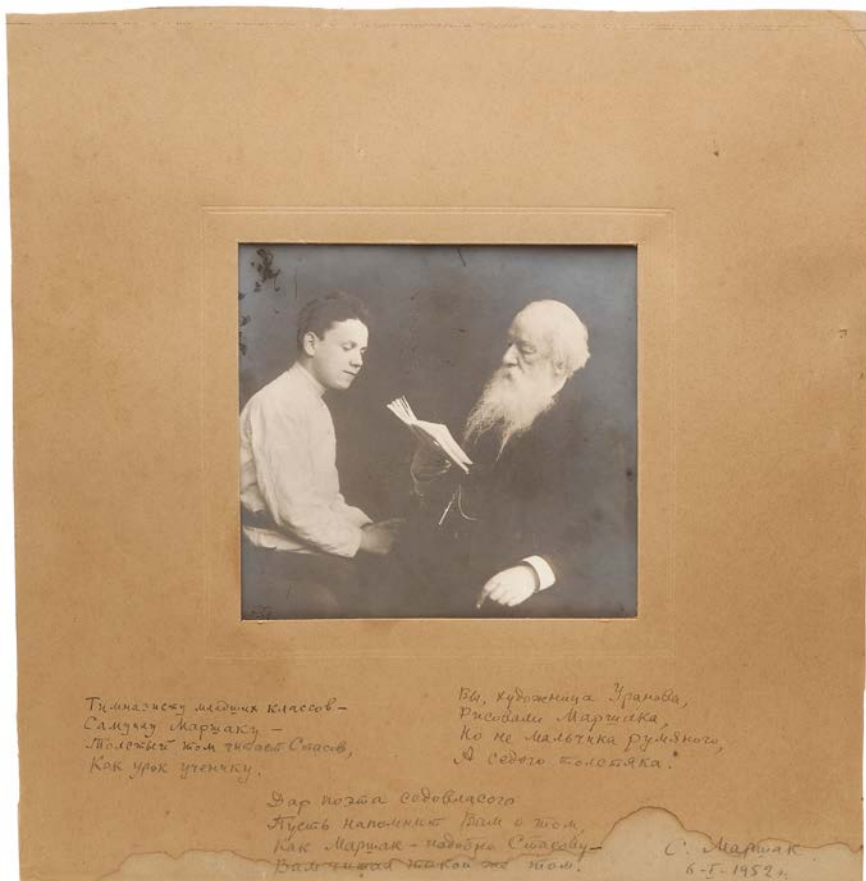 Гимназисту младших классов –
Самуилу Маршаку –
Толстый том читает Стасов,
Как урок ученику.
Вы, художница Уранова,
Рисовали Маршака,
Но не мальчика румяного,
А седого толстяка.
Дар поэта седовласого
Пусть напомнит Вам о том,
Как Маршак – подобно Стасову –
Вам читал такой же том.
С. Маршак
6-I-1952 г.